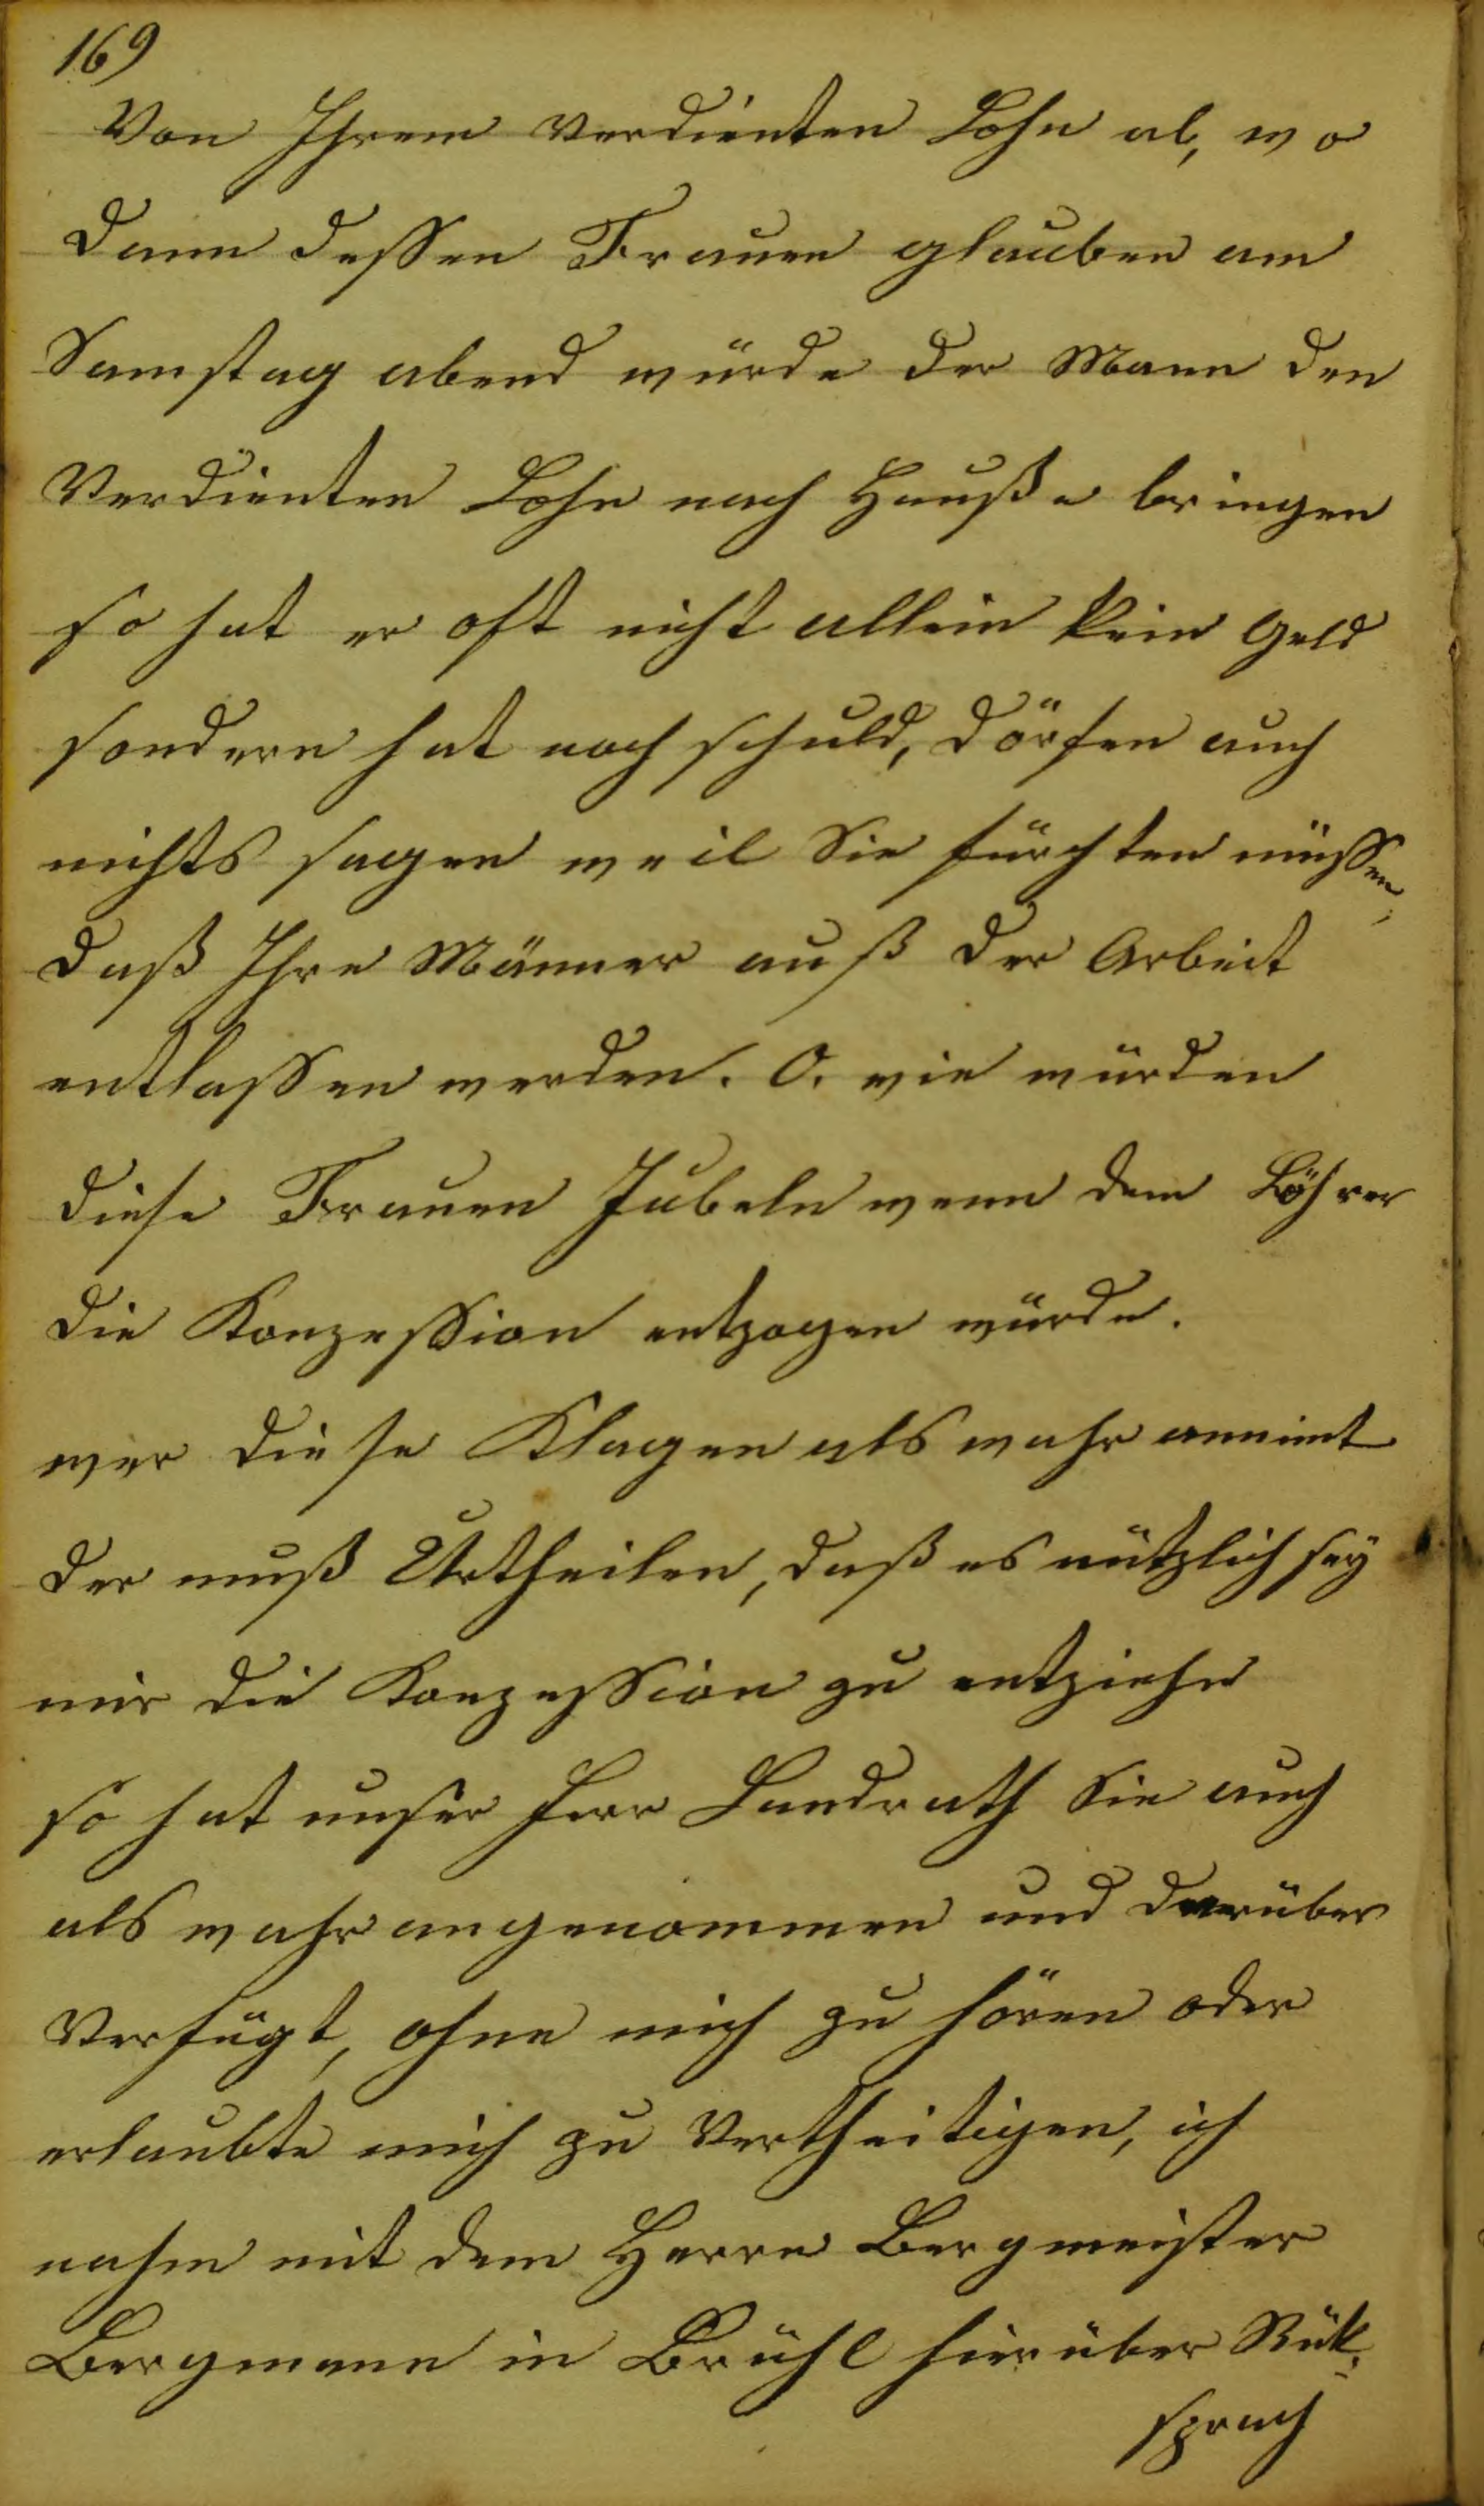 169
Von Ihrem verdienten Lohn ab, wo
dann dessen Frauen glauben am
Samstag abend würde der Mann den
Verdienten Lohn nach Hauße bringen
so hat er oft nicht allein kein Geld
sondern hat noch schuld, dörfen auch
nichts sagen weil Sie fürchten müssen,
daß Ihre Männer auß der Arbeit
entlassen werden. O. wie würden
diese Frauen Jubeln wenn dem Löhrer
die Konzession entzogen würde.
wer diese Klagen als wahr annimt
der muß Urtheilen, daß es nützlich sey
mir die Konzession zu entziehen
so hat unser Herr Landrath Sie auch
als wahr angenommen und darüber
Verfügt, ohne mich zu hören oder
erlaubte mich zu Vertheitigen, ich
nahm mit dem Herrn Bergmeister
Bergmann in Brühl hierüber Rük-
sprach